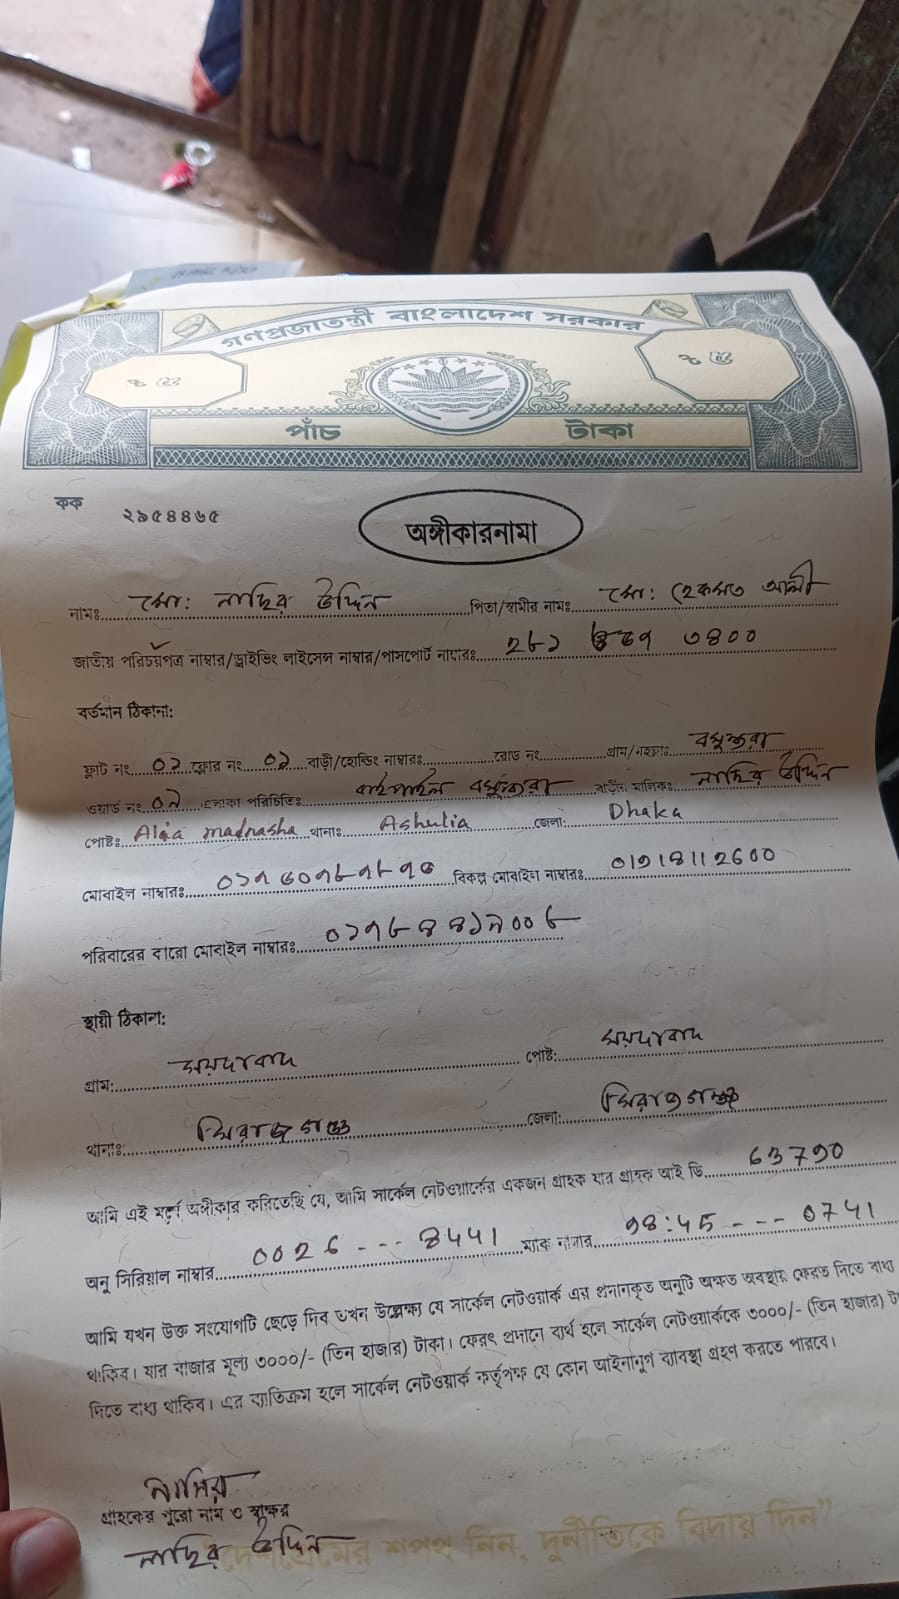 গণপ্রজাতন্ত্রী বাংলাদেশ সরকার
৳ ৫ ৳ ৫
পাঁচ টাকা
কক ২৯৫৪৪৬৫
অঙ্গীকারনামা
নামঃ মো: নাছির উদ্দিন পিতা/স্বামীর নাম: মো: হেকমত আলী
জাতীয় পরিচয়পত্র নাম্বার/ড্রাইভিং লাইসেন্স নাম্বার/পাসপোর্ট নাম্বারঃ ২৮১ ৩৪০০
বর্তমান ঠিকানা:
ফ্লাট নং ০১ ফ্লোর নং ০১ বাড়ী/হোল্ডিং নাম্বারঃ রোড নং গ্রাম/মহল্লাঃ বসুন্ধরা
ওয়ার্ড নং ০৯ এলাকা পরিচিতিঃ বাইপাইল বসুন্ধরা বাড়ীর মালিকঃ নাছির উদ্দিন
পোষ্টঃ Alia madrasha থানাঃ Ashulia জেলা: Dhaka
মোবাইল নাম্বারঃ ০১৭৬০৭৮৭৮৭৬ বিকল্প মোবাইল নাম্বারঃ 01918112600
পরিবারের কারো মোবাইল নাম্বারঃ ০১৭৮৪৪১৯০০৮
স্থায়ী ঠিকানা:
গ্রাম: সয়দাবাদ পোষ্ট: সয়দাবাদ
থানাঃ সিরাজগঞ্জ জেলা: সিরাজগঞ্জ
আমি এই মর্মে অঙ্গীকার করিতেছি যে, আমি সার্কেল নেটওয়ার্কের একজন গ্রাহক যার গ্রাহক আই ডি 63790
অনু সিরিয়াল নাম্বার 0026 --- 8441 ম্যাক নাম্বার 98:45 --- 0741
আমি যখন উক্ত সংযোগটি ছেড়ে দিব তখন উল্লেক্ষ্য যে সার্কেল নেটওয়ার্ক এর প্রদানকৃত অনুটি অক্ষত অবস্থায় ফেরত দিতে বাধ্য
থাকিব। যার বাজার মূল্য ৩০০০/- (তিন হাজার) টাকা। ফেরৎ প্রদানে ব্যর্থ হলে সার্কেল নেটওয়ার্ককে ৩০০০/- (তিন হাজার)
দিতে বাধ্য থাকিব। এর ব্যতিক্রম হলে সার্কেল নেটওয়ার্ক কর্তৃপক্ষ যে কোন আইনানুগ ব্যবস্থা গ্রহণ করতে পারবে।
নাছির
গ্রাহকের পুরো নাম ও স্বাক্ষর
নাছির উদ্দিন
শপথ নিন, দুর্নীতিকে বিদায় দিন"